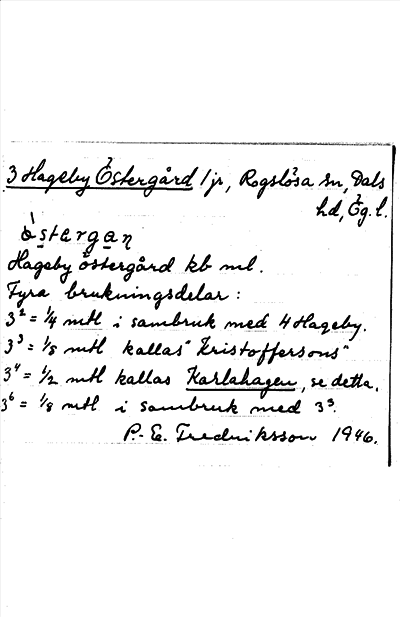 3 Hageby Östergård 1/jr, Rogslösa sn, Dals
hd, Ög. l.
östergaṇ
Hageby östergård kb ml.
Fyra brukningsdelar:
3² = 1/4 mtl i sambruk med 4 Hageby.
3³ = 1/8 mtl kallas "Kristoffersons"
3⁴ = 1/2 mtl kallas Karlahagen, se detta.
3⁶ = 1/8 mtl i sambruk med 3³.
P.-E. Fredriksson 1946.